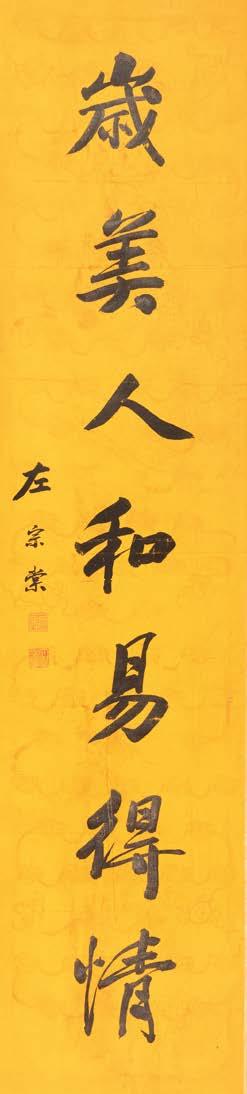 歲美人和易得情
左宗棠